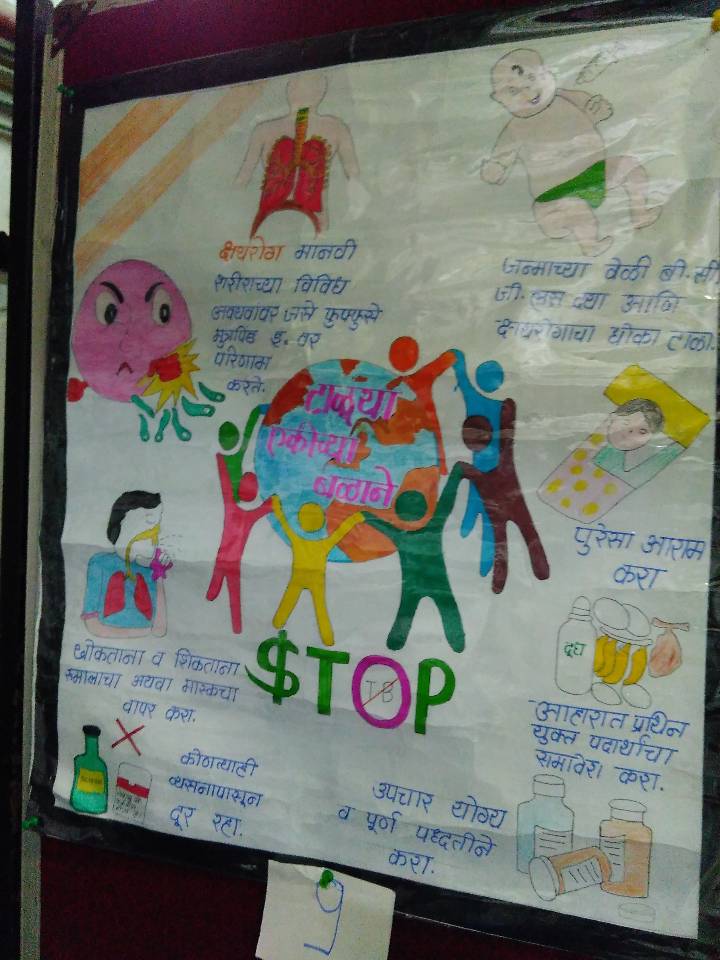 क्षयरोग मानवी
शरीराच्या विविध
अवयवांवर जसे फुफ्फुसे
मुत्रपिंड इ. वर
परिणाम
करते.
जन्माच्या वेळी बी.सी
जी. लस द्या आणि
क्षयरोगाचा धोका टाळा.
टाळूया
एकीच्या
बळाने
पुरेसा आराम
करा
खोकताना व शिंकताना
रुमालाचा अथवा मास्कचा
वापर करा.
$TOP
TB
दूध
आहारात प्रथिन
युक्त पदार्थाचा
समावेश करा.
कोणत्याही
व्यसनापासून
दूर रहा.
उपचार योग्य
व पूर्ण पध्दतीने
करा.
9